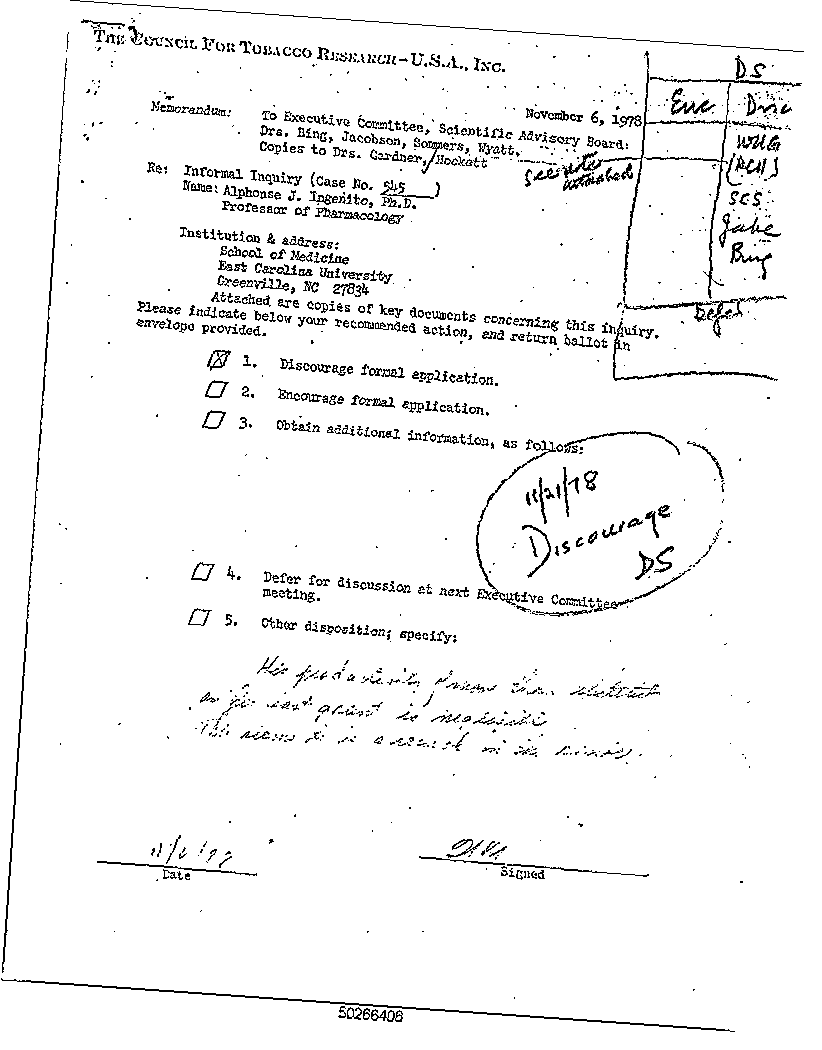 THE COUNCIL FOR TOBACCO RESEARCH-U.S.A., INC.
DS
Enc
November 6, 1978
Memorandum: To Executive Committee, Scientific Advisory Board:
Drs. Bing, Jacobson, Sommers, Wyatt.
Copies to Drs. Gardner, Hockett
see notes attached
WUG
(RCH)
SCS
Jake
Bing
Defer
Re: Informal Inquiry (Case No. 545 )
Name: Alphonse J. Ingenito, Ph.D.
Professor of Pharmacology
Institution & address:
School of Medicine
East Carolina University
Greenville, NC 27834
Attached are copies of key documents concerning this inquiry.
Please indicate below your recommended action, and return ballot in
envelope provided.
1. Discourage formal application.
2. Encourage formal application.
3. Obtain additional information, as follows:
11/21/78
Discourage
DS
4. Defer for discussion at next Executive Committee
meeting.
5. Other disposition; specify:
His
grant is
Date
Signed
50266406